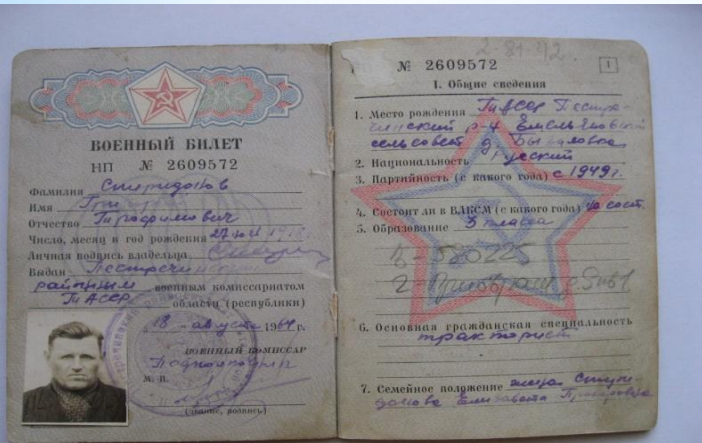 ВОЕННЫЙ БИЛЕТ
НП № 2609572
Фамилия Спиридонов
Имя
Отчество Трофимович
Число, месяц и год рождения 27
Личная подпись владельца
Выдан
районным военным комиссариатом
ТАССР области (республики)
18 августа 1964 г.
ВОЕННЫЙ КОМИССАР
Подполковник
М. П.
(звание, подпись)
2-81-42.
№ 2609572
1
1. Общие сведения
1. Место рождения ТАССР Пестре-
чинский р-н
сельсовет д
2. Национальность Русский
3. Партийность (с какого года) с 1949 г.
4. Состоит ли в ВЛКСМ (с какого года) не сост.
5. Образование 3 класса
6. Основная гражданская специальность
тракторист
7. Семейное положение жена Спири-
донова Елизавета